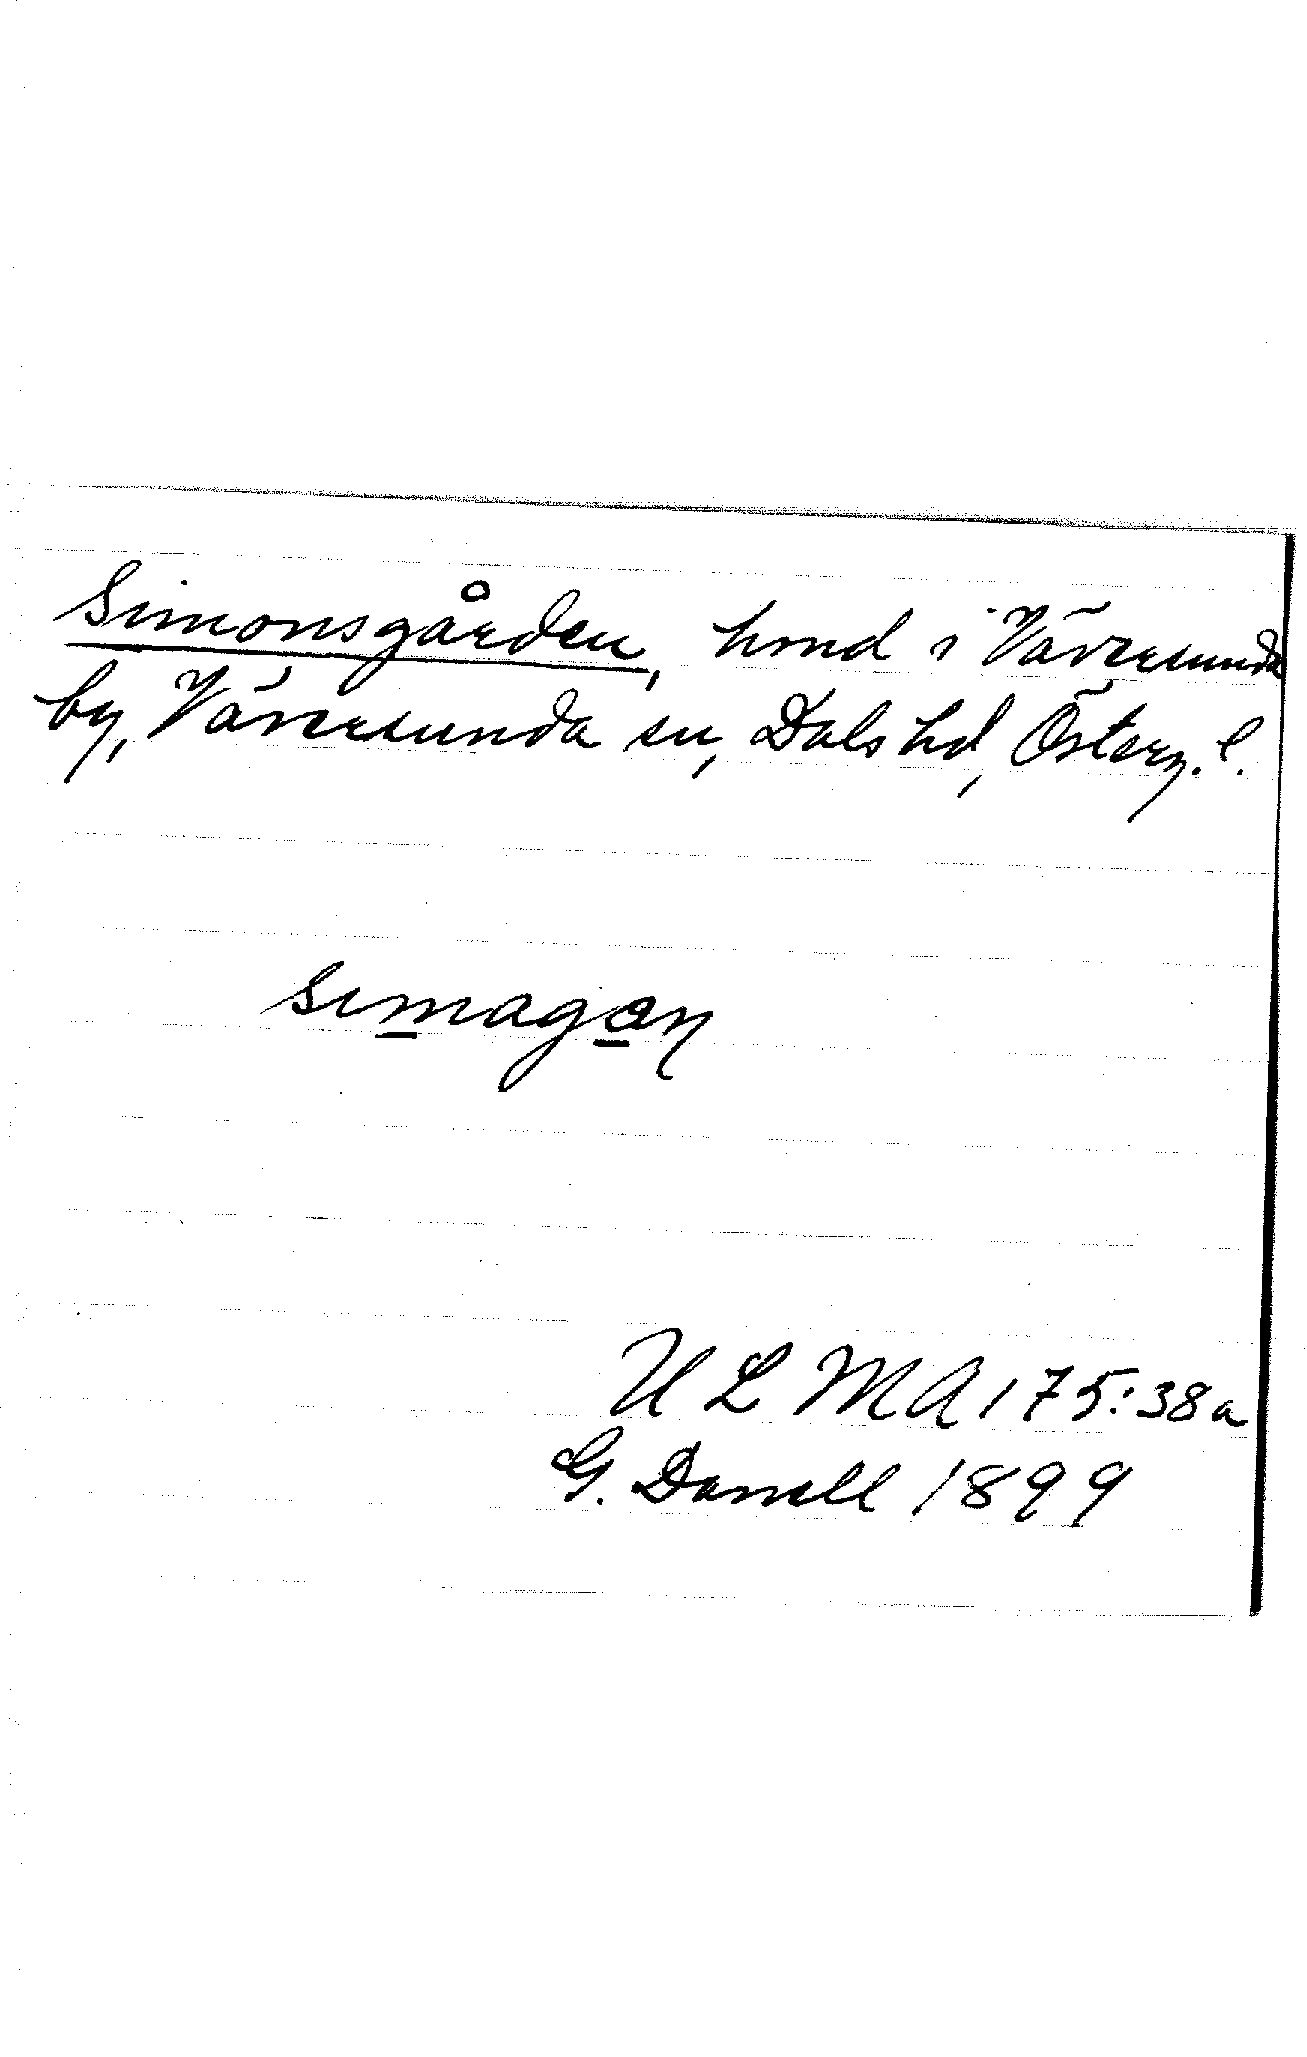 Simonsgården, hmd i Väversunda
by, Väversunda sn, Dals hd, Österg. l.
simagan
ULMA 175:38a
G. Danell 1899